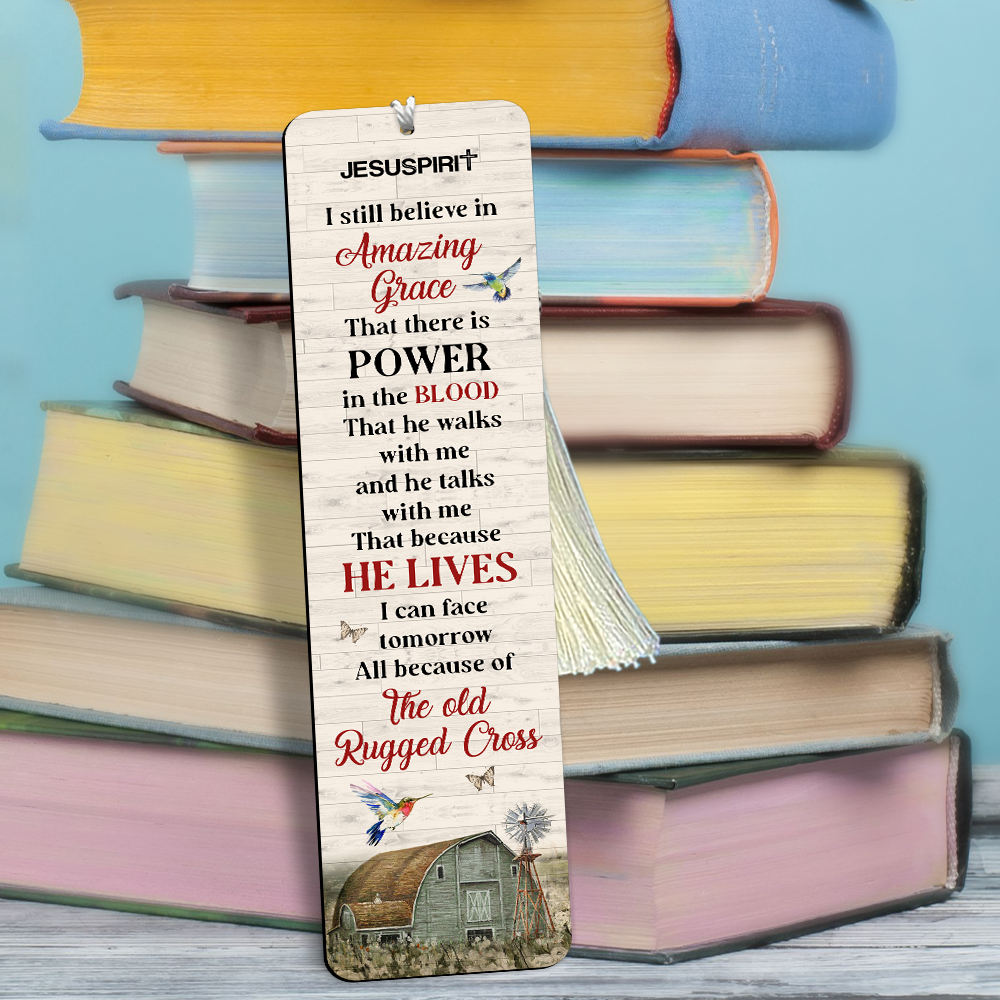 JESUSPIRIT
I still believe in
Amazing
Grace
That there is
POWER
in the BLOOD
That he walks
with me
and he talks
with me
That because
HE LIVES
I can face
tomorrow
All because of
The old
Rugged Cross